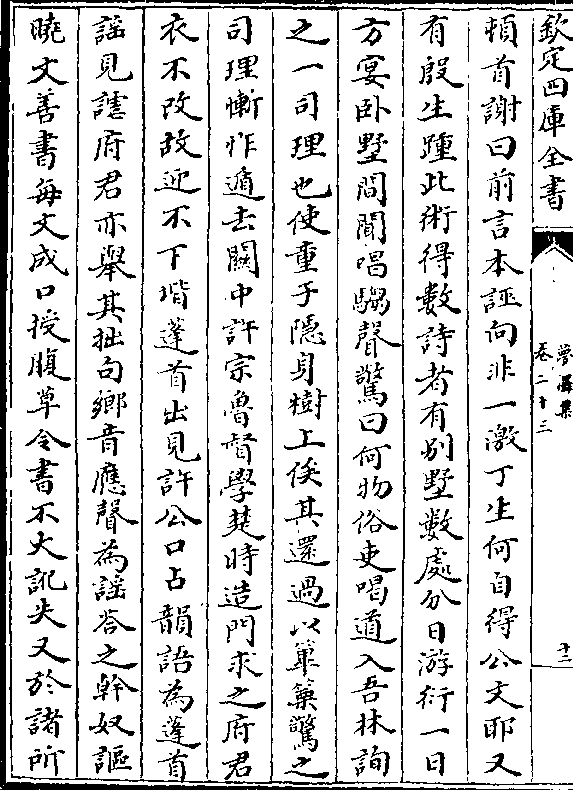 欽定四庫全書
卷二十三
十二
頓首謝曰前言本誣向非一激丁生何自得公文耶又
有殷生踵此術得數詩者有别墅數處分日游衍一日
方宴卧墅間聞唱騶聲驚曰何物俗吏喝道入吾林詢
之一司理也使童子隱身樹上俟其還過以篳篥驚之
司理慚怍遁去關中許宗魯督學楚時造門求之府君
衣不改故迎不下堦蓬首出見許公口占韻語為蓬首
謡見謔府君亦舉其拙句鄉音應聲為謡答之幹奴謳
曉文善書每文成口授腹草令書不大訛失又於諸所